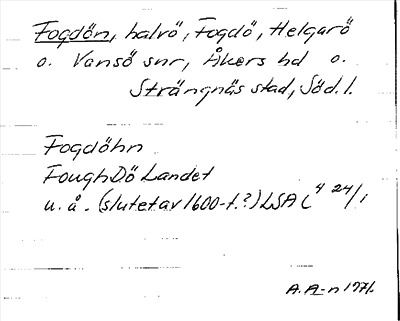 Fogdön, halvö, Fogdö, Helgarö
o. Vansö snr, Åkers hd o.
Strängnäs stad, Söd. l.
Fogdöhn
FoughDö Landet
u. å. (slutet av 1600-t.?) LSA C⁴ 24/1
A. A-n 1971.